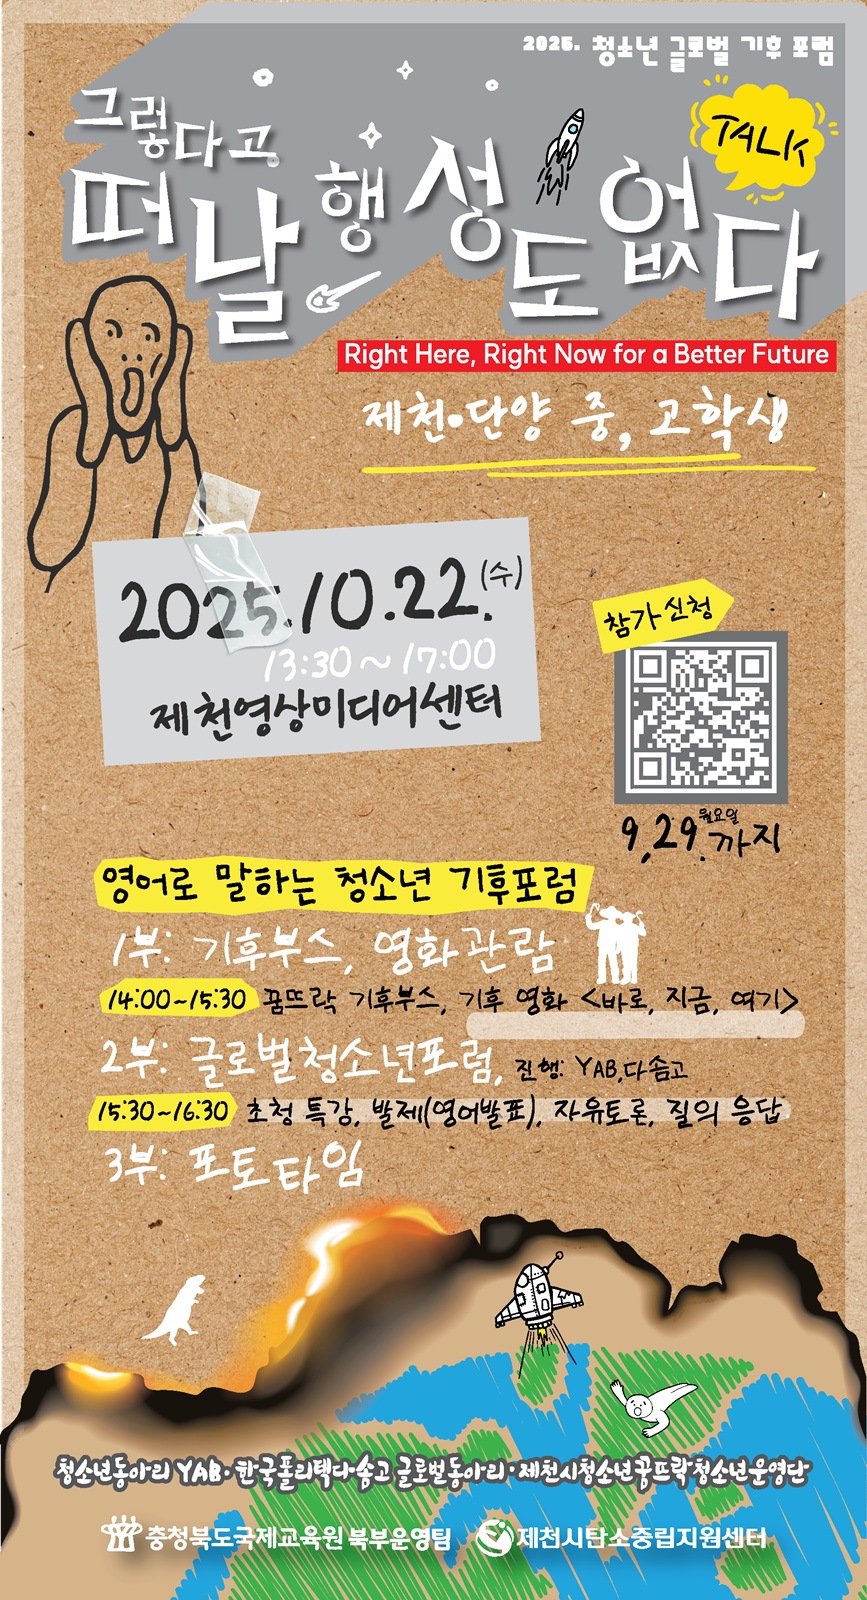 2025. 청소년 글로벌 기후 포럼
그렇다고
떠날 행성도 없다
TALK
Right Here, Right Now for a Better Future
제천•단양 중, 고학생
2025.10.22.(수)
13:30~17:00
제천영상미디어센터
참가신청
9.29.월요일까지
영어로 말하는 청소년 기후포럼
1부: 기후부스, 영화관람
14:00~15:30 꿈뜨락 기후부스, 기후 영화 <바로, 지금, 여기>
2부: 글로벌청소년포럼, 진행: YAB,다솜고
15:30~16:30 초청 특강, 발제(영어발표), 자유토론, 질의 응답
3부: 포토타임
청소년동아리 YAB·한국폴리텍다솜고 글로벌동아리·제천시청소년꿈뜨락청소년운영단
충청북도국제교육원 북부운영팀 제천시탄소중립지원센터